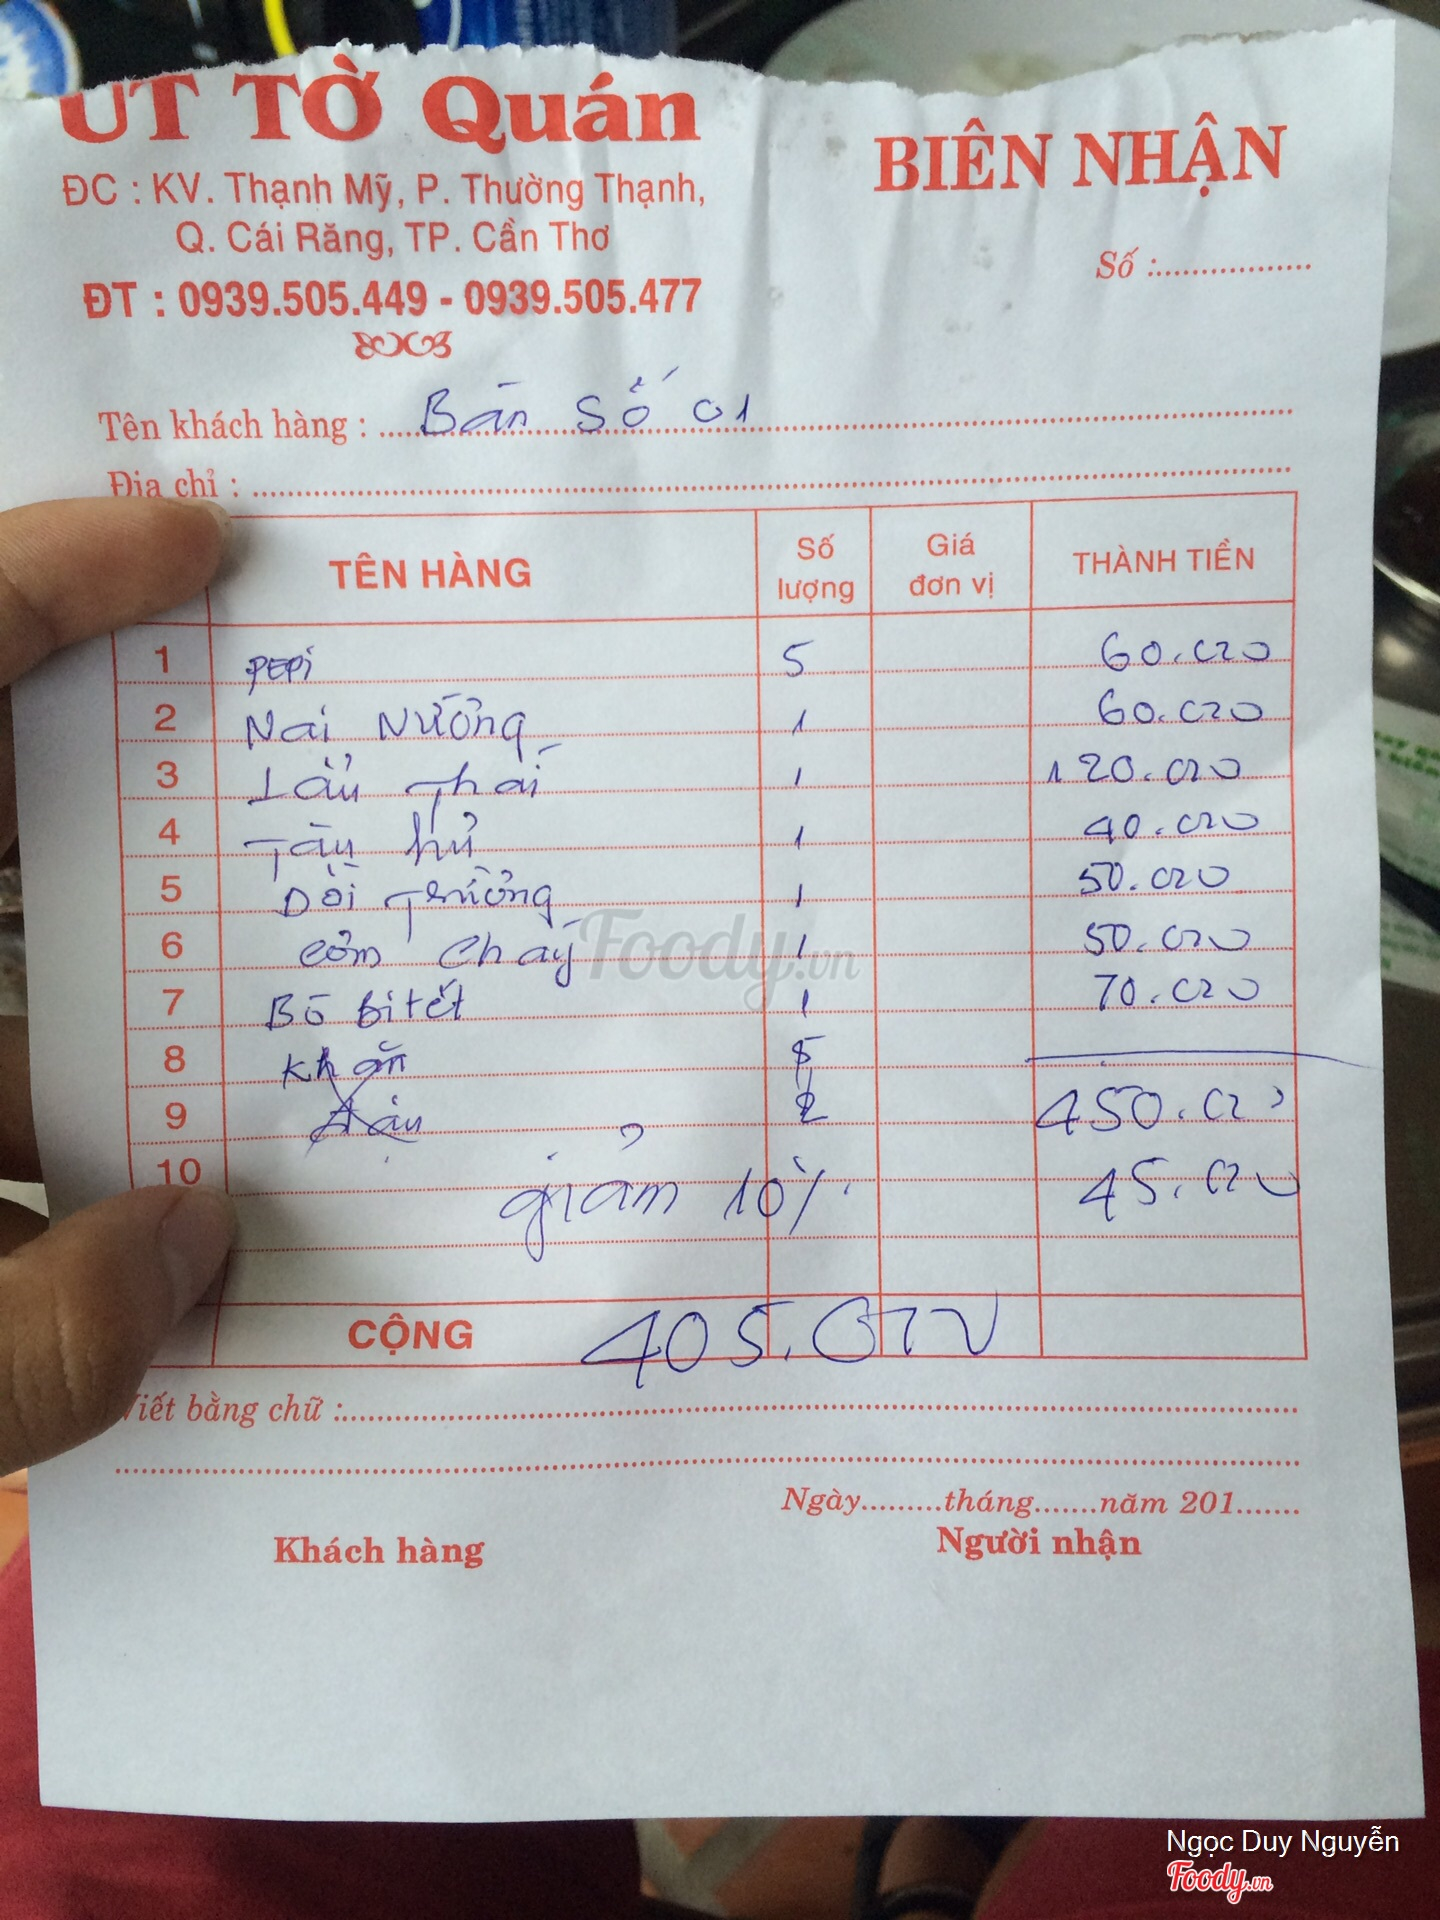 ÚT TỜ Quán
BIÊN NHẬN
ĐC : KV. Thạnh Mỹ, P. Thường Thạnh,
Q. Cái Răng, TP. Cần Thơ
Số :
ĐT : 0939.505.449 - 0939.505.477
Tên khách hàng : Bàn Số 01
Địa chỉ :
TÊN HÀNG Số lượng Giá đơn vị THÀNH TIỀN
1 PEPi 5 60.000
2 Nai Nướng 1 60.000
3 Lẩu Thái 1 120.000
4 Tàu hủ 1 40.000
5 Dồi Trường 1 50.000
6 Cơm Cháy 1 50.000
7 Bò bitết 1 70.000
8 Khăn
9 2 450.000
10 giảm 10% 45.000
CỘNG 405.000
Viết bằng chữ :
Ngày.........tháng.......năm 201.......
Khách hàng Người nhận
Foody.vn
Ngọc Duy Nguyễn
Foody.vn